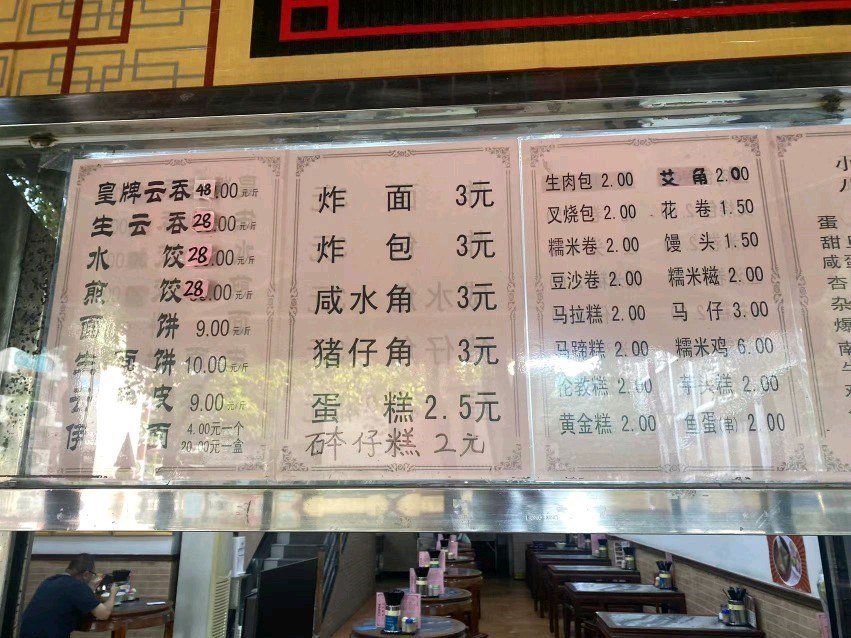 皇牌云吞 48.00元/斤
生云吞 28.00元/斤
水饺 28.00元/斤
煎饺 28.00元/斤
面饼 9.00元/斤
生面饼 10.00元/斤
云皮 9.00元/斤
伊面 4.00元一个
20.00元一盒
炸面 3元
炸包 3元
咸水角 3元
猪仔角 3元
蛋糕 2.5元
砵仔糕 2元
生肉包 2.00 艾角 2.00
叉烧包 2.00 花卷 1.50
糯米卷 2.00 馒头 1.50
豆沙卷 2.00 糯米糍 2.00
马拉糕 2.00 马仔 3.00
马蹄糕 2.00 糯米鸡 6.00
伦教糕 2.00 车头糕 2.00
黄金糕 2.00 鱼蛋(串) 2.00
小
八
蛋
甜
咸蛋
杏
杂
爆
南
牛
鸡